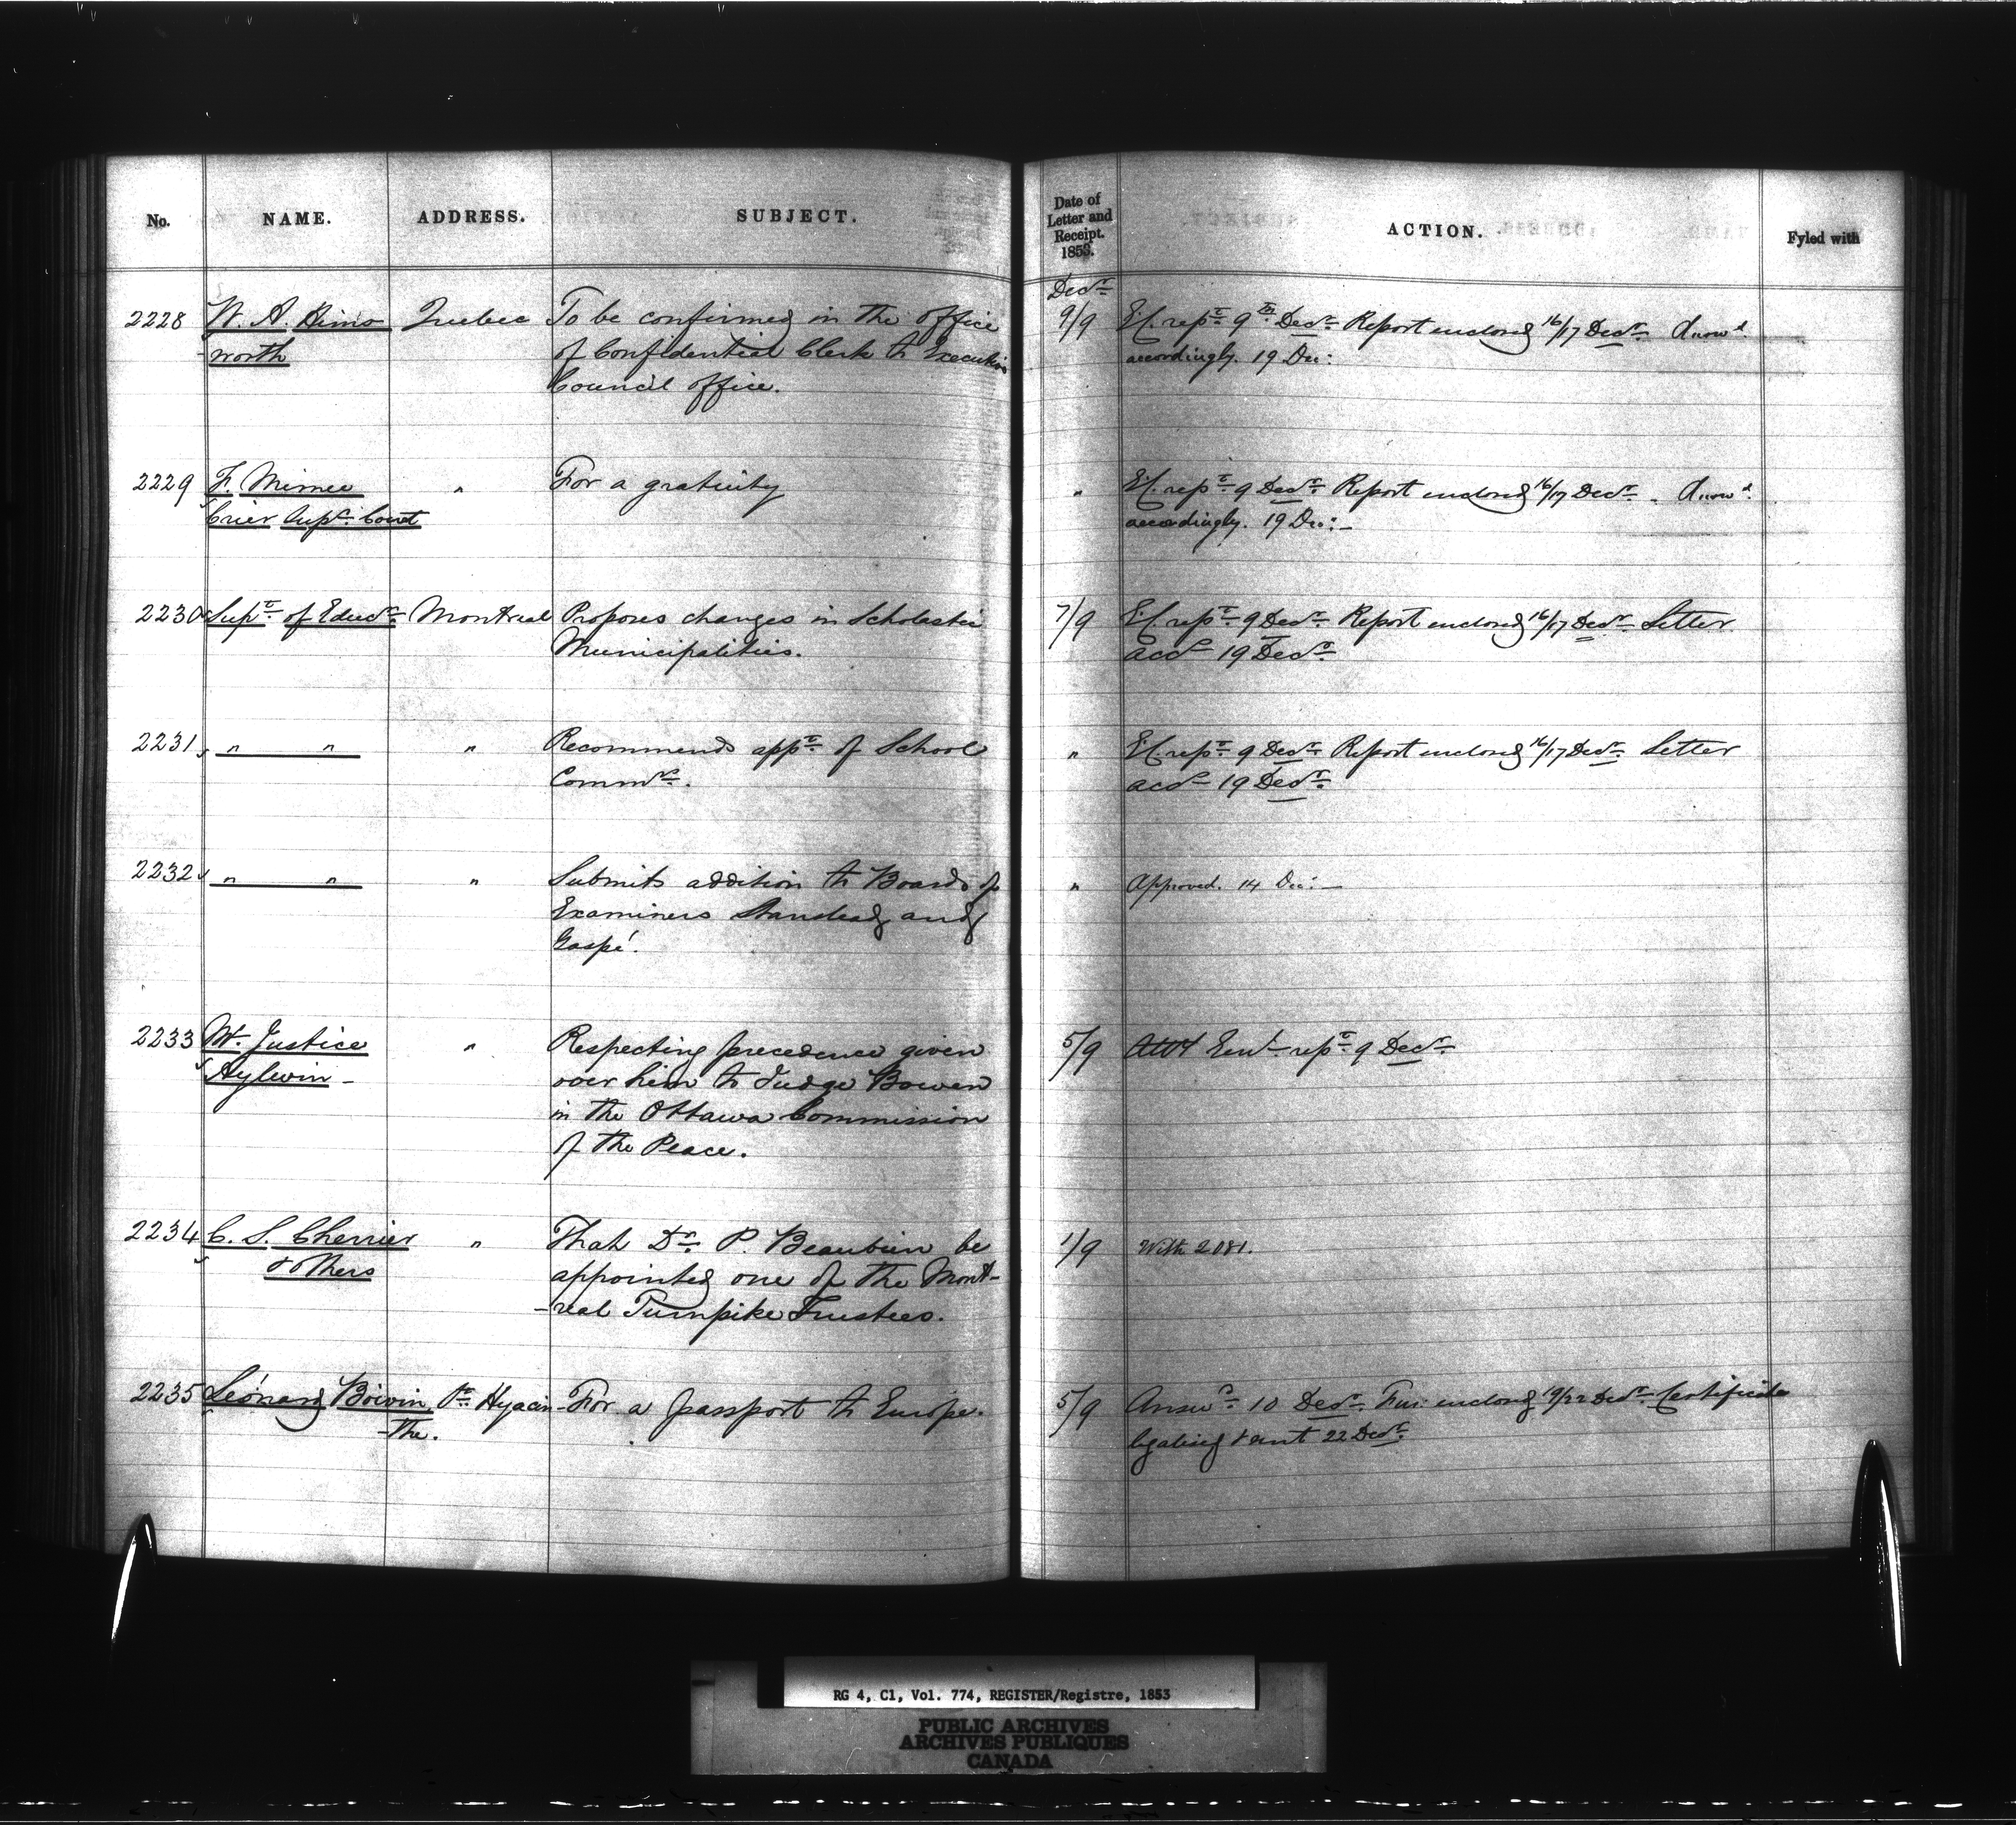 No. NAME. ADDRESS. SUBJECT.
Date of Letter and Receipt. 1853. ACTION. Fyled with
Decr
2228 W. A. Himsworth Quebec To be confirmed in the office
of Confidential Clerk to Executive
Council office.
9/9 E.C. rept 9th Decr Report enclosed 16/17 Decr. Answd
accordingly. 19 Dec:
2229 F. Mimee " For a gratuity
Crier Supr Court
" E.C. rept 9 Decr Report enclosed 16/17 Decr. Answd
accordingly. 19 Dec: –
2230 Supt of Educn Montreal Proposes changes in Scholastic
Municipalities.
7/9 E.C. rept 9 Decr Report enclosed 16/17 Decr Letter
accd 19 Decr
2231 " " " Recommends appt of School
Commrs.
" E.C. rept 9 Decr Report enclosed 16/17 Decr. Letter
accd 19 Decr
2232 " " " Submits addition to Boards of
Examiners Stanstead and
Gaspé.
" Approved. 14 Dec: –
2233 Mr. Justice " Respecting precedence given
Aylwin – over him to Judge Bowen
in the Ottawa Commission
of the Peace.
5/9 rept 9 Decr
2234 C. S. Cherrier " That Dr. P. Beaubien be
& others appointed one of the Mont-
-real Turnpike Trustees.
1/9 With 2081.
2235 Léonard Boivin St Hyacin- For a passport to Europe.
-the.
5/9 Answd 10 Decr. enclosg 19/22 Decr Certificate
legalised & sent 22 Decr
RG 4, C1, Vol. 774, REGISTER/Registre, 1853
PUBLIC ARCHIVES
ARCHIVES PUBLIQUES
CANADA